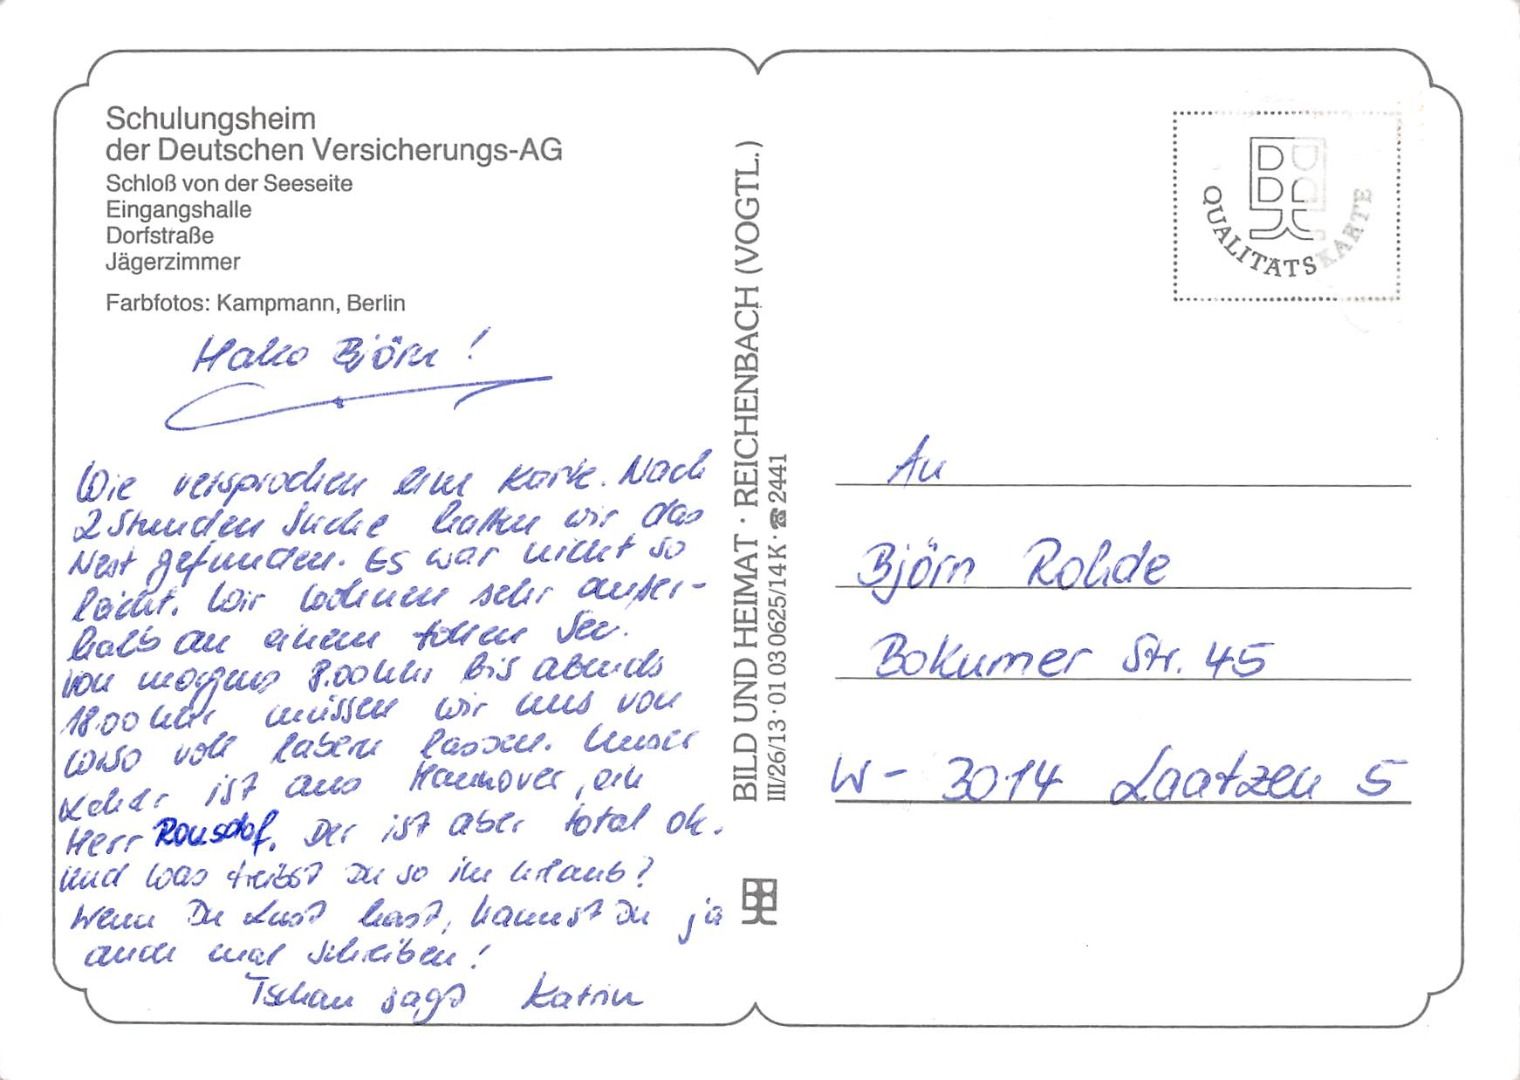 Schulungsheim
der Deutschen Versicherungs-AG
Schloß von der Seeseite
Eingangshalle
Dorfstraße
Jägerzimmer
Farbfotos: Kampmann, Berlin
Hallo Björn!
Wie versprochen eine Karte. Nach
2 Stunden Suche hatten wir das
Nest gefunden. Es war nicht so
leicht. Wir wohnen sehr außer-
halb an einem tollen See.
Von morgens 8.00 Uhr bis abends
18.00 Uhr müssen wir uns von
voll labern lassen. Unser
Lehrer ist aus Hannover, ein
Herr Ronsdorf. Der ist aber total ok.
Und was treibst Du so im Urlaub?
Wenn Du Lust hast, kannst Du ja
auch mal schreiben!
Tschau sagt Katrin
BILD UND HEIMAT · REICHENBACH (VOGTL.)
III/26/13 · 01 03 0625/14 K · ☎ 2441
QUALITÄTSKARTE
An
Björn Rohde
Bokumer Str. 45
W-3014 Laatzen 5